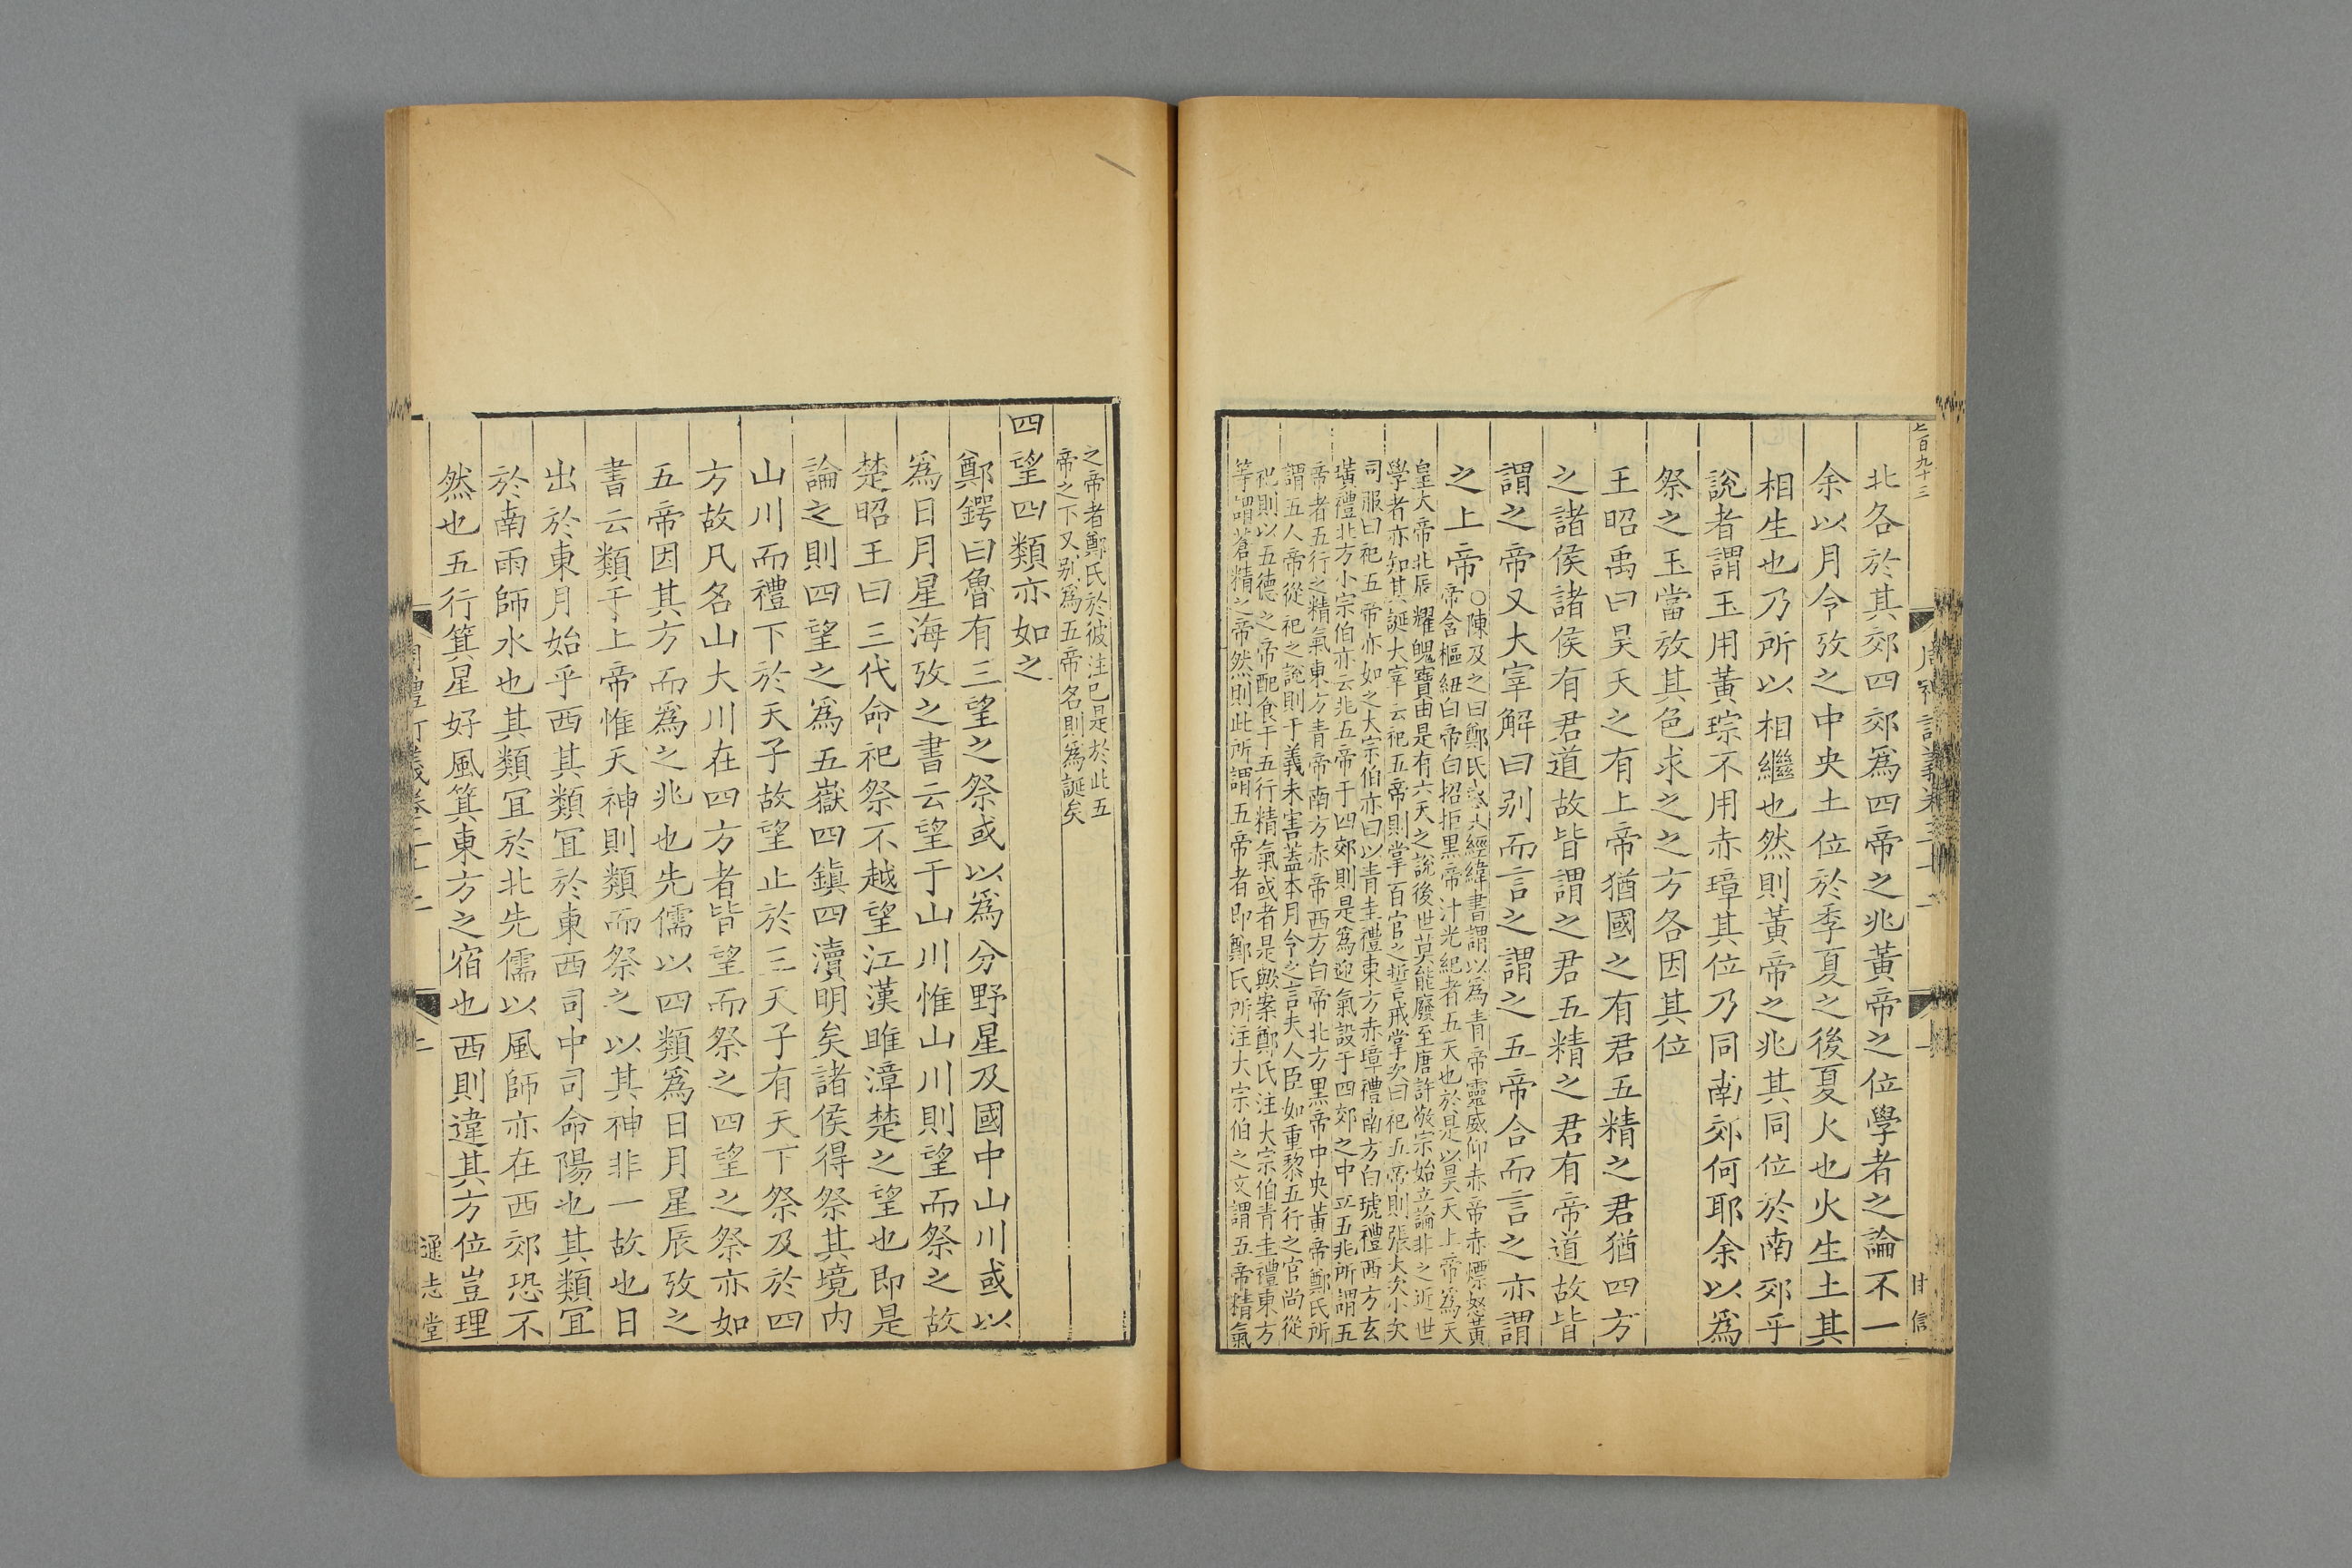 七百九十三
甘信
北各於其郊四郊爲四帝之兆黃帝之位學者之論不一
余以月令攷之中央土位於季夏之後夏火也火生土其
相生也乃所以相繼也然則黃帝之兆其同位於南郊乎
說者謂玉用黃琮不用赤璋其位乃同南郊何耶余以爲
祭之玉當放其色求之之方各因其位
王昭禹曰昊天之有上帝猶國之有君五精之君猶四方
之諸侯諸侯有君道故皆謂之君五精之君有帝道故皆
謂之帝又大宰解曰别而言之謂之五帝合而言之亦謂
之上帝
○陳及之曰鄭氏 經緯書謂以爲青帝靈威仰赤帝赤熛怒黃
帝含樞紐白帝白招拒黑帝汁光紀者五天也於是以昊天上帝爲天
皇大帝北辰耀魄寶由是有六天之說後世莫能廢至唐許敬宗始立論非之近世
學者亦知其誕大宰云祀五帝則掌百官之誓戒掌次曰祀五帝則張大次小次
司服曰祀五帝亦如之大宗伯亦曰以青圭禮東方赤璋禮南方白琥禮西方玄
璜禮北方小宗伯亦云兆五帝于四郊則是爲迎氣設于四郊之中立五兆所謂五
帝者五行之精氣東方青帝南方赤帝西方白帝北方黑帝中央黃帝鄭氏所
謂五人帝從祀之說則于義未害蓋本月令之言夫人臣如重黎五行之官尚從
祀則以五德之帝配食于五行精氣或者是歟案鄭氏注大宗伯青圭禮東方
等謂蒼精之帝然則此所謂五帝者即鄭氏所注大宗伯之文謂五帝精氣
之帝者鄭氏於彼注已是於此五
帝之下又别爲五帝名則爲誕矣
四望四類亦如之
鄭鍔曰魯有三望之祭或以爲分野星及國中山川或以
爲日月星海攷之書云望于山川惟山川則望而祭之故
楚昭王曰三代命祀祭不越望江漢雎漳楚之望也即是
論之則四望之爲五嶽四鎮四瀆明矣諸侯得祭其境内
山川而禮下於天子故望止於三天子有天下祭及於四
方故凡名山大川在四方者皆望而祭之四望之祭亦如
五帝因其方而爲之兆也先儒以四類爲日月星辰攷之
書云類于上帝惟天神則類而祭之以其神非一故也日
出於東月始乎西其類冝於東西司中司命陽也其類冝
於南雨師水也其類冝於北先儒以風師亦在西郊恐不
然也五行箕星好風箕東方之宿也西則違其方位豈理
通志堂